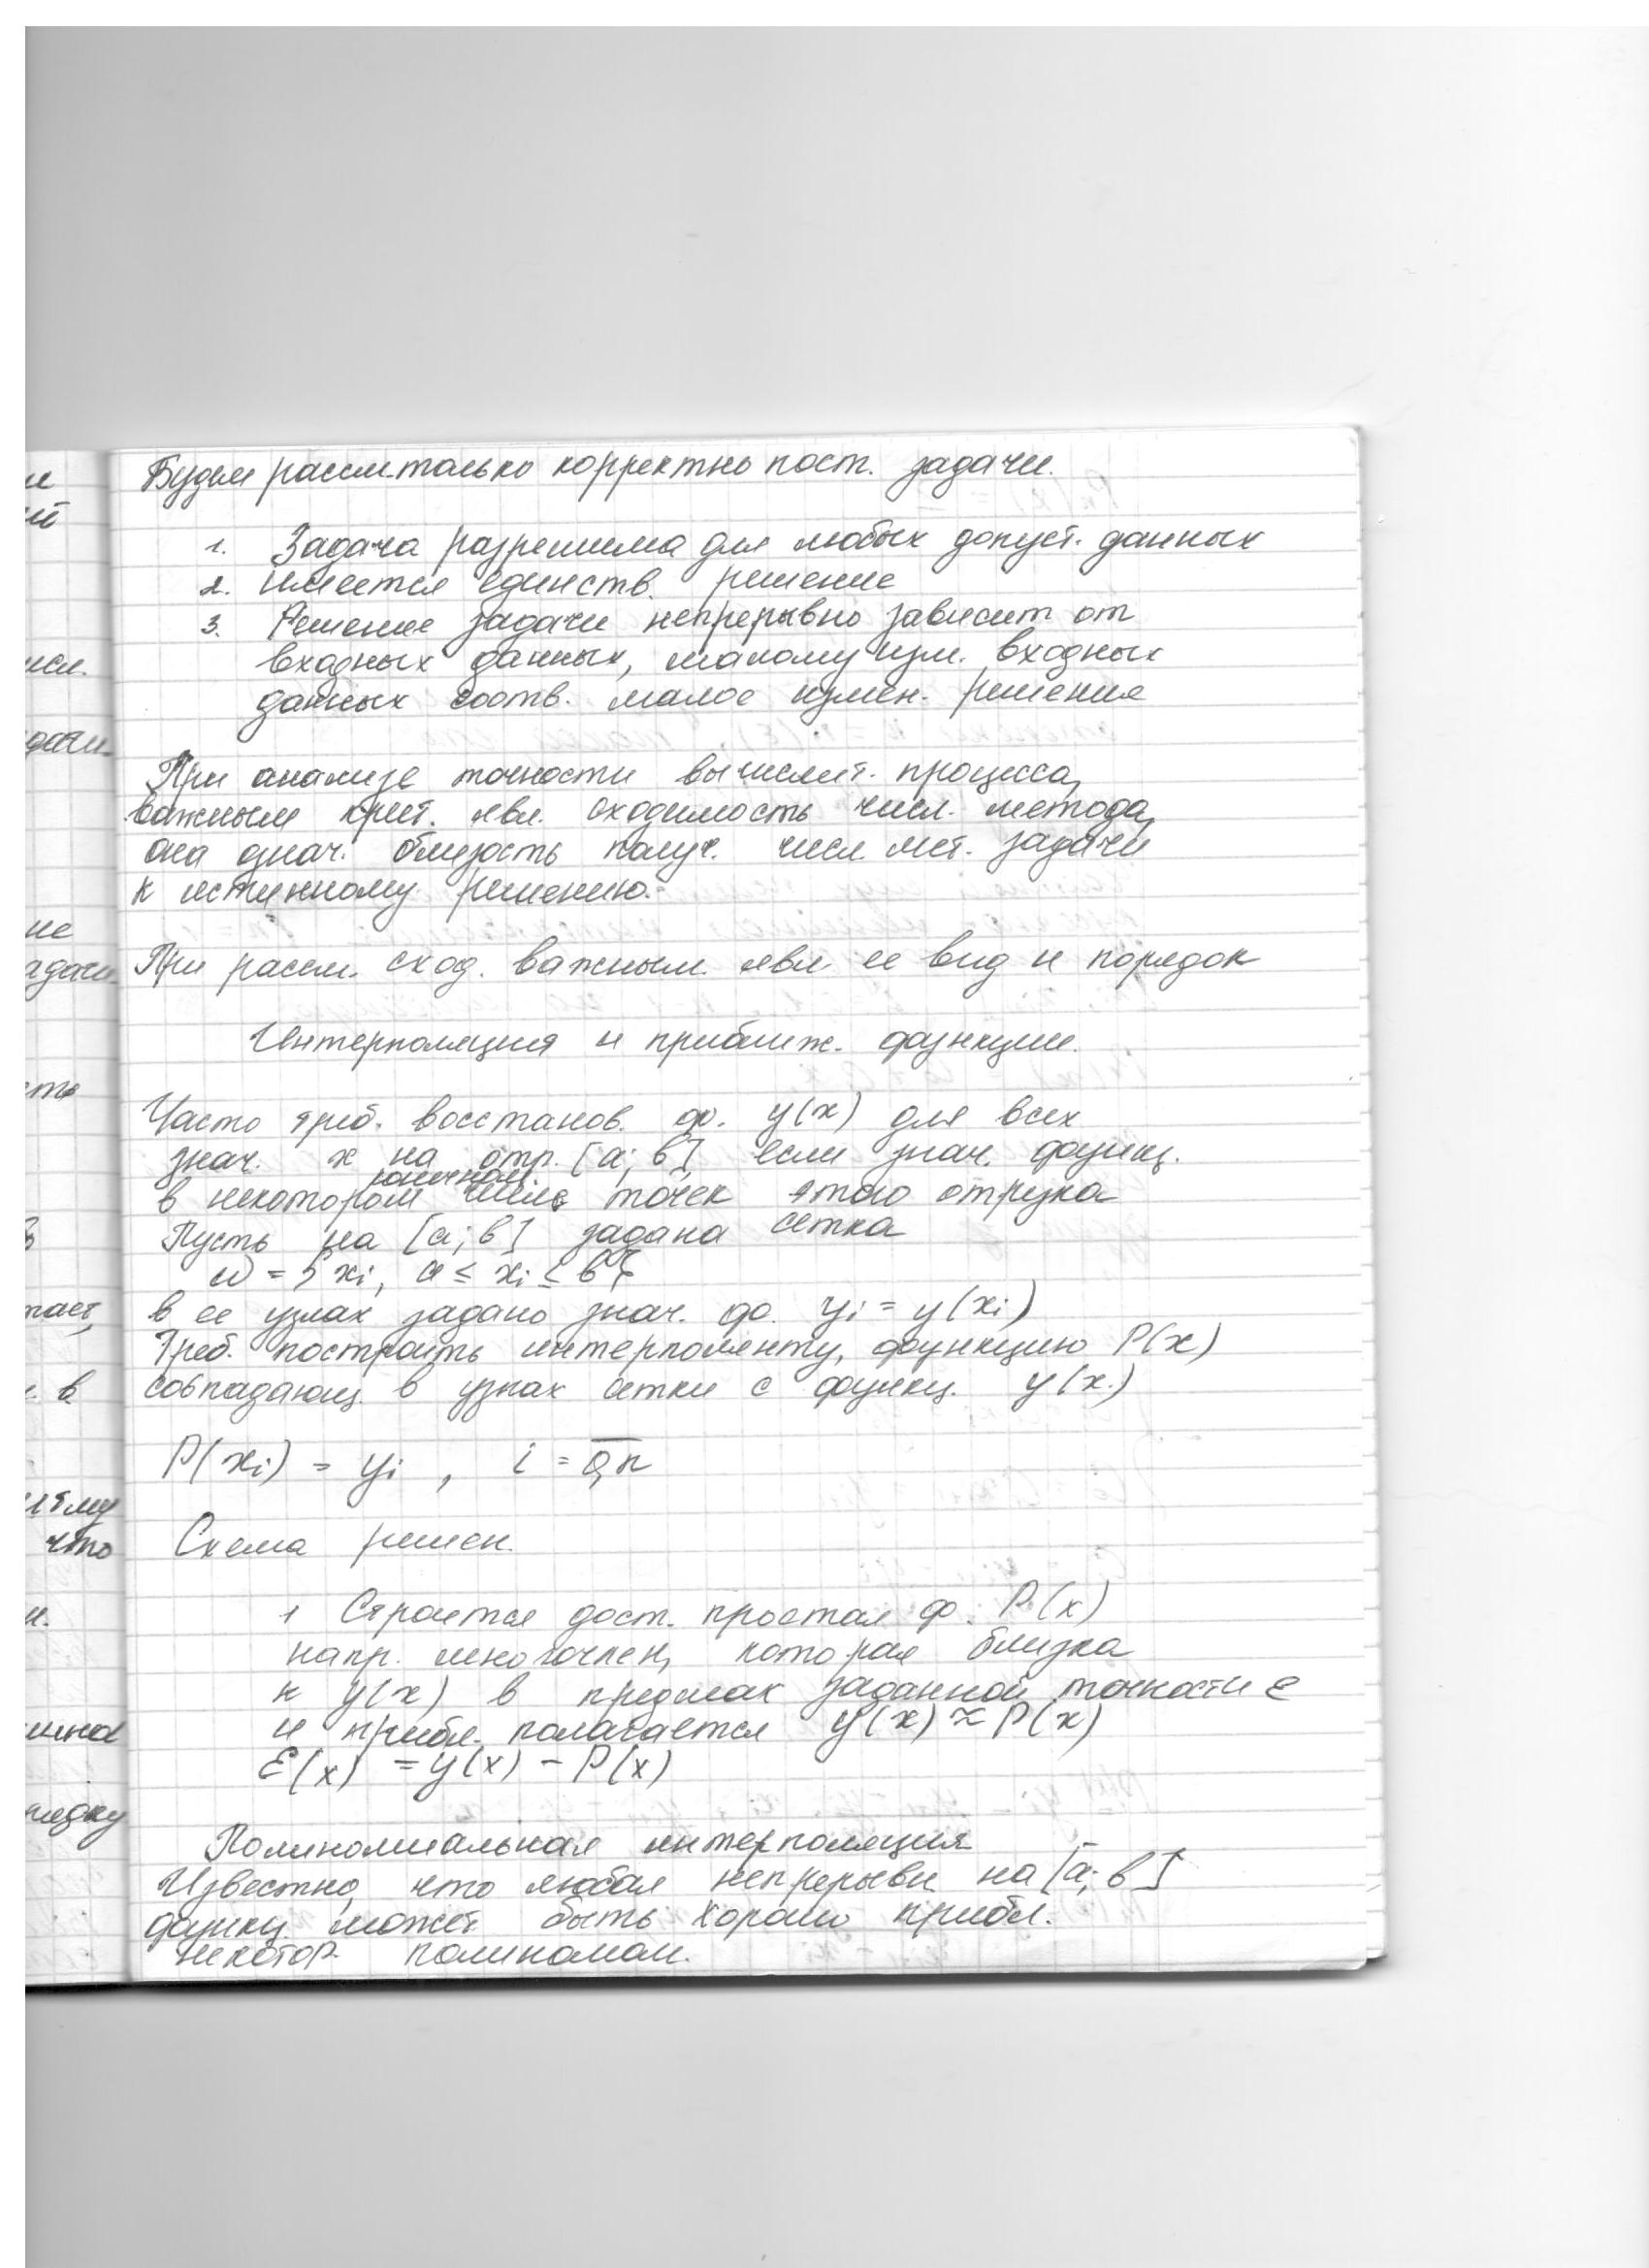 Будем рассм. только корректно пост. задачи.
1. Задача разрешима для любых допуст. данных
2. имеется единств. решение
3. Решение задачи непрерывно зависит от
входных данных, малому изм. входных
данных соотв. малое измен. решения
При анализе точности вычислит. процесса,
важным крит. явл. сходимость числ. метода,
она означ. близость получ. числ. мет. задачи
к истинному решению.
При рассм. сход. важным. явл. ее вид и порядок
Интерполяция и приближ. функции.
Часто треб. восстанов. ф. y(x) для всех
знач. x на отр. [a; b] если знач. функц.
в некотором конечном числе точек этого отрезка
Пусть на [a; b] задана сетка
ω = {xi, a ≤ xi ≤ b}
в ее узлах задано знач. ф. yi = y(xi)
Треб. построить интерполянту, функцию P(x)
совпадающ. в узлах сетки с функц. y(x.)
P(xi) = yi , i = 0,n
Схема решен.
1 Строится дост. простая ф. P(x)
напр. многочлен, которая близка
к y(x) в пределах заданной точности ε
и прибл. полагается y(x) ≈ P(x)
ε(x) = y(x) - P(x)
Полиномиальная интерполяция
Известно, что любая непрерывн. на [a; b]
функц. может быть хорошо прибл.
некотор. полиномом.